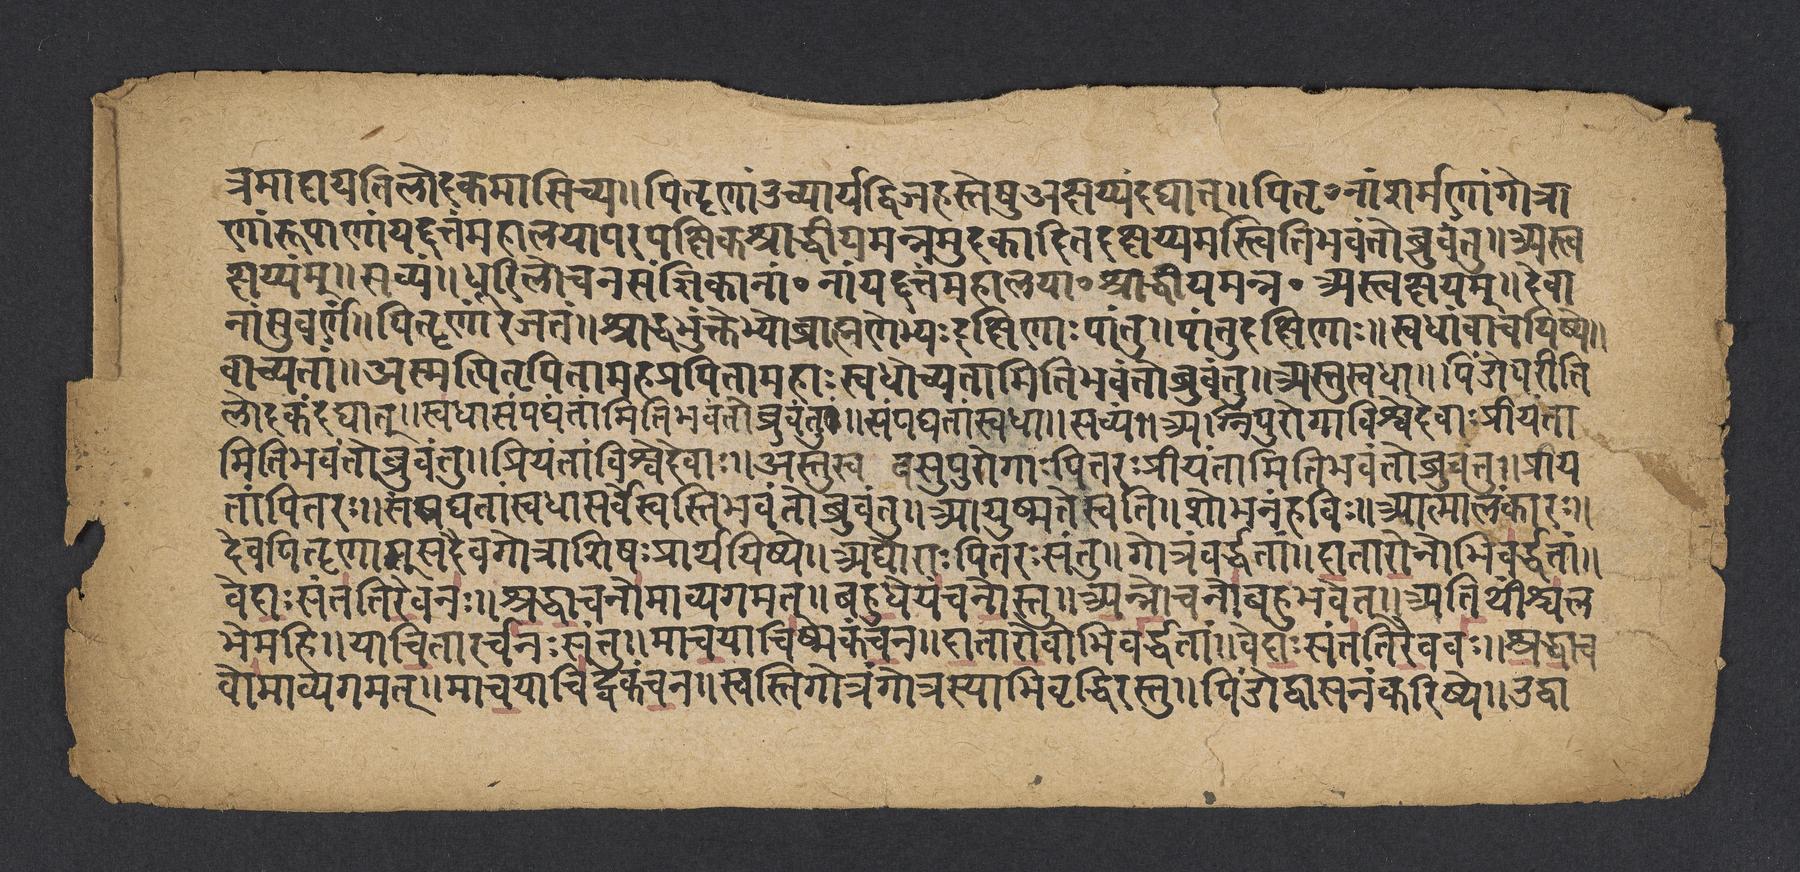 त्रमादाययतिलोदकमासिच्य॥पितॄणांउच्यार्यद्विजहस्तेषुअक्षय्यंदद्यात्॥पितृ॰नांशर्मणांगोत्रा
णांरूपाणांयद्दत्तंमहालयापरपक्षिकश्राद्धीयमन्नमुदकादितदक्षय्यमस्त्वितिभवंतोब्रुवंतु॥अस्त्व
क्षय्यंम्॥सव्यं॥धूरिलोचनसंज्ञिकानां॰नांयद्दत्तंमहालया॰श्राद्धीयमन्न॰अस्त्वक्षयम्॥देवा
नांसुवर्णं॥पितॄणांरजतं॥श्राद्धभुंक्तेभ्योब्राह्मणेभ्यःदक्षिणाःपांतु॥पांतुदक्षिणाः॥स्वधांवाचयिष्ये॥
वाच्यतां॥अस्मत्पितृपितामहप्रपितामहाःस्वधोच्यतामितिभवंतोब्रुवंतु॥अस्तुस्वधा॥पिंडोपरीति
लोदकंदद्यात्॥स्वधासंपद्यंतांमितिभवंतोब्रुवंतु॥संपद्यतांस्वधा॥सव्यं॥अग्निपुरोगाविश्वेदेवाःप्रीयंता
मितिभवंतोब्रुवंतु॥प्रियंतांविश्वेदेवाः॥अस्तुस्व वसुपुरोगाःपितरःप्रीयंतामितिभवंतोब्रुवंतु॥प्रीय
तांपितरः॥संपद्यतांस्वधासर्वेस्वस्तिभवंतोब्रुवंतु॥आयुष्मतेस्वति॥शोभनंहविः॥आत्मालंकारः॥
दैवपितॄणासुसदैवगोत्राशिषःप्रार्थयिष्ये॥अघोराःपितरःसंतु॥गोत्रंवर्द्धतां॥दातारोनोभिवर्द्धतां॥
वेदाःसंततिरेवनः॥श्रद्धाचनोमाव्यगमत्॥बहुधेयंचनोस्तु॥अन्नोचनोबहुभवेत॥अतिथींश्चल
भेमहि॥याचितारर्चनःसंतु॥माचयाचिष्मकंचन॥दातारोवोभिवर्द्धतां॥वेदाःसंततिरेववः॥श्रद्धाच
वोमाव्यगमत्॥माचयाचिढ्वकंचन॥स्वस्तिगोत्रंगोत्रस्याभिवृद्धिरस्तु॥पिंडोद्वासनंकरिष्ये॥उद्वा